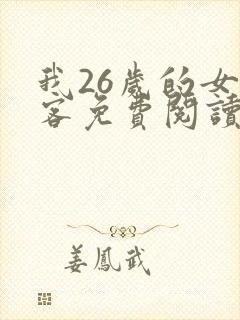 我26歲的女
客免費閱讀
姜鳳武